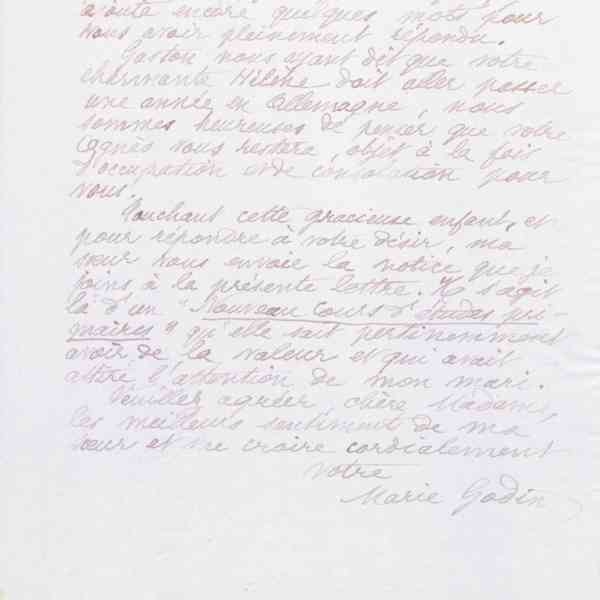 ajoute encore quelques mots pour
vous avoir pleinement répondu.
Gaston nous ayant dit que votre
charmante Hélène doit aller passer
une année en Allemagne, nous
sommes heureuses de penser que votre
Agnès vous restera, objet à la fois
d'occupation et de consolation pour
vous.
Touchant cette gracieuse enfant, et
pour répondre à votre désir, ma
sœur vous envoie la notice que je
joins à la présente lettre. Il s'agit
là d'un "Nouveau cours d'études pri-
maires" qu'elle sait pertinemment
avoir de la valeur et qui avait
attiré l'attention de mon mari.
Veuillez agréer, chère Madame,
les meilleurs sentiment de ma
sœur et me croire cordialement
votre
Marie Godin